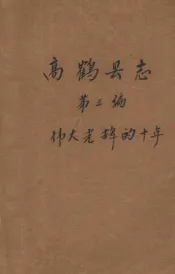 高鹤县志
第二编
伟大光辉的十年